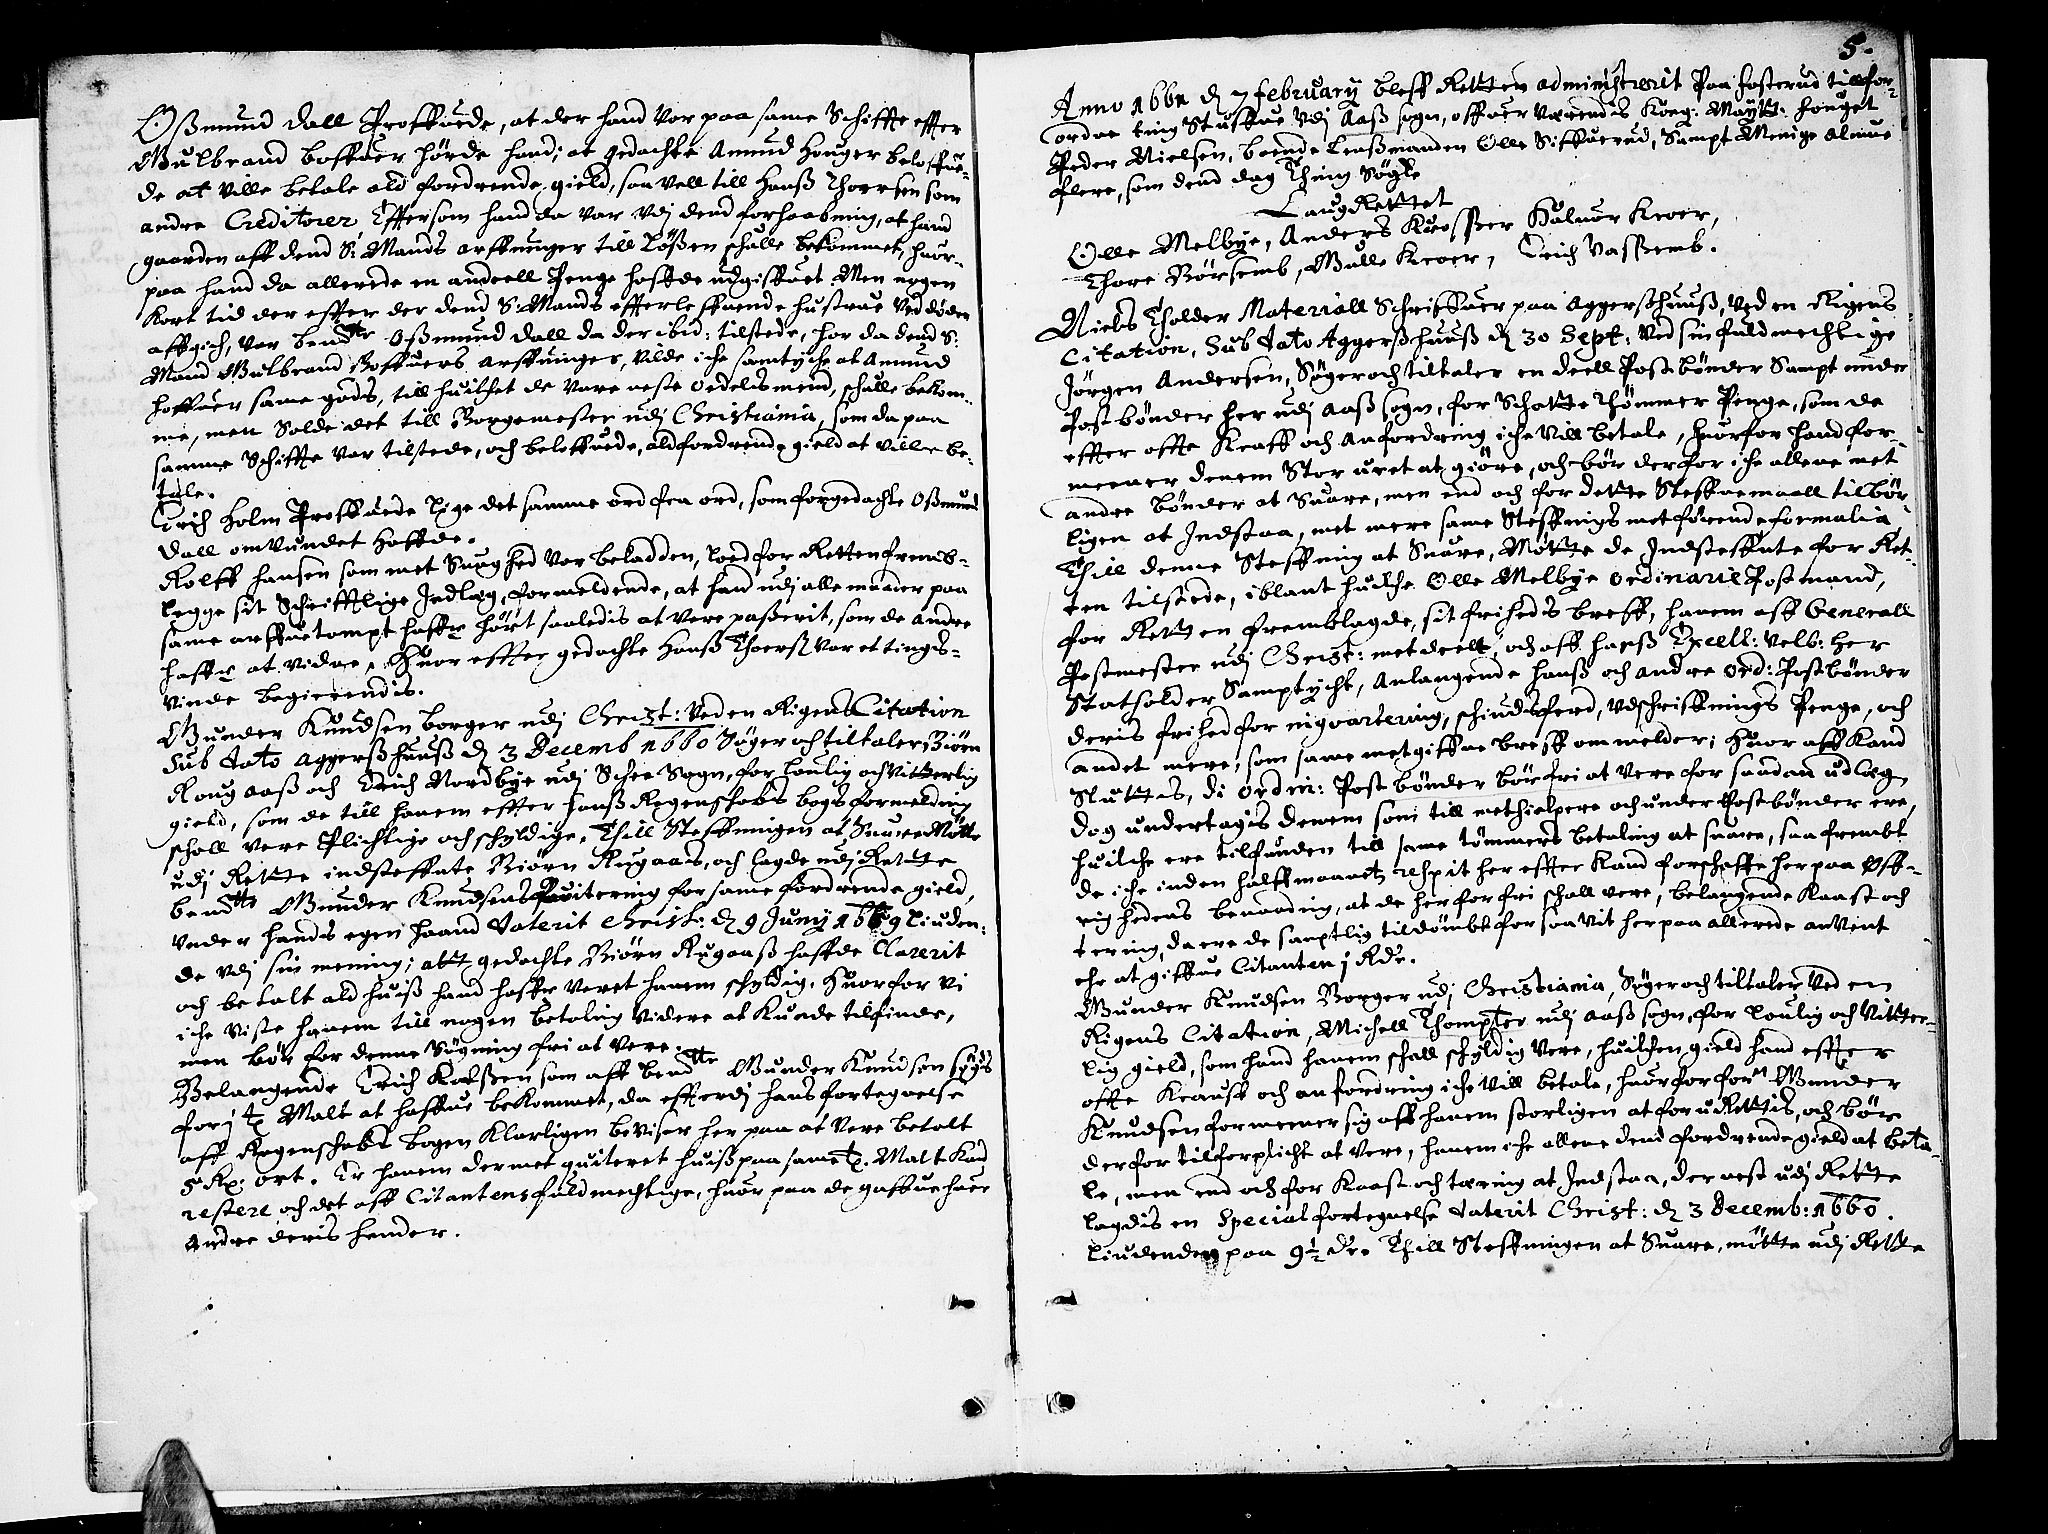 Oßmund Dall Proffuede, at der hand Vor paa same Schiffte effter
Gulbrand Boffuer hörde hand; at gedachte Amund Houger beloffue-
de at Ville betale ald fordrende gield, saa Vell till Hanß Thorsen som
andre Creditorer, Effersom hand da Var Vdj dend forhaabning, at hand
gaarden aff dend S: Mands arffuinger till Lößen schulle bekommet, huor-
paa hand da allerede en andeell Penge haffde udgiffuet Men nogen
Kort tid der effter der dend S: Mands effterleffuende hustrue Ved döden
affgich, Var bend^te Oßmund Dall da der ibid: tilstede, hor da dend S:
Mand Gulbrand Boffuers arffuinger, Vilde iche samtyche at Amund
hoffuer same gods, till huilchet de Vare neste odelsmend, schulle bekom-
me, men Solde det till Borgemester udj Christiania, som da paa
samme Schiffte Var tilstede, och beloffuede, ald fordrende gield at Ville be-
tale.
Erich Holm Proffuede Lige det samme ord fra ord, som forgedachte Oßmund
Dall omVundet haffde.
Rolff Hansen som met Suaghed Var beladden, Loed for Retten fremb-
legge sit Schrifftlige Indleg, formeldende, at hand udj alle maader paa
same arffuetompt haffr hört saaledis at Vere paßerit, som de andre
haffr at Vidne, Huor effter gedachte Hanß Thorsß Var et tings-
Vinde begierendis.
Gunder Knudsen borger udj Christ: Ved en Rigens Citation
Sub dato Aggerßhuuß d 3 Decemb 1660 Söger och tiltaler Biörn
Roug aaß och Erich Nordbye udj Schee Sogn, for louglig och Vitterlig
gield, som de till hanem effter hanß Regenschabs bogs formelding
schall Vere Plichtige och schyldige, Thill Steffningen at Suare Mötte
udj Rette indsteffnte Biörn Rugaas, och lagde udj Rette
bend^te Gunder Knudsens Quitering for same fordrende gield,
Vnder hands egen haand daterit Christ: d 9 Juny 1659 liuden-
de Vdj sin mening; at gedachte Biörn Rugaaß haffde Clarerit
och betalt ald huiß hand haffr Veret hanem schyldig, Huorfor Vi
iche Viste hanem till nogen betaling Videre at Kunde tilfinde,
men bör for denne Sögning fri at Vere.
Belangende Erich Kolßen som aff bend^te Gunder Knudsen sögis
for j t Malt at haffue bekommet, da effterdj hans fortegnelse
aff Regenschabs bogen Klarligen beviser her paa at Vere betalt
5 R ort. Er hanem dermet quiteret huiß paa same t. Malt Kand
restere och det aff Citantens fuldmechtige, huor paa de gaffue huer
Andre deris hender.
5.
Anno 1661 d 7 february bleff Retten administrerit Paa Fosterud tillfor-
ordne ting Stuffue Vdj Aaß sogn, offuer Værendis Kong: Mayts: fouget
Peder Nielsen, boende Lenßmanden Olle Siffuerud, Sampt Menige almue
flere, som dend dag Thing Sögte
LaugRettet
Olle Melbye, Anders Kroßer Haluor Kroer,
Thore Börsemb, Gulle Kroer, Erich Vaßemb.
Niels Tholder Materiall Schriffuer paa Aggerßhuuß, Ved en Rigens
Citation, Sub dato Aggerßhuuß d 30 Sept: Ved sin fuldmechtige
Jörgen Andersen, Söger och tiltaler en deell Postbönder Sampt under
Postbönder her udj Aaß sogn, for Schatte Thömmer Penge, som de
effter offte Kraff och Anfordring iche Vill betale, huorfor hand for-
meener denem Stor uret at giöre, och bör derfor iche allene met
andre bönder at Suare, men end och for dette Steffnemaall tilbör-
ligen at Indstaa, met mere same Steffnings metförende formalia
Thill denne Steffning at Suare, Mötte de Indsteffnte for Ret-
ten tilstede, iblant huilche Olle Melbye ordinarie Postmand,
for Retten fremblagde, sit friheds breff, hanem aff Generall
Postmester udj Christ: metdeelt, och aff hanß Excell: Velb: Her
Statholder Samptycht, Anlangende hanß och andre ord: Postbönder
deris frihed for inqvartering, schiudsferd, Vdschriffnings Penge, och
andet mere, som same metgiffne breff ommelder; Huor aff Kand
Sluttis, di ordin: Postbönder bör fri at Vere for saadan udleg
Dog undertagis denem som till methielpere och under Postbönder ere,
huilche ere tilfunden till same tömmers betaling at suare, saa frembt
de iche inden halffmaanetz respit her effter Kand forschaffe her paa Öff-
righedens benaading, at de her for fri schall vere, belangende Kaast och
tering, da ere de samptlig tildömbt for saa Vit her paa allerede anVent
ehr at giffue Citanten j Rdr.
Gunder Knudsen Borger udj Christiania, Söger och tiltaler Ved en
Rigens Citation, Michell Thompter udj Aaß sogn, for louglig och Vitter-
lig gield, som hand hanem schall schyldig Vere, huilchen gield hand effter
offte Krauff och anfordring iche Vill betale, huorfor for^n Gunder
Knudsen formeener sig aff hanem storligen at forudRettis, och bör
derfor tilforplicht at Vere, hanem iche allene dend fordrende gield at beta-
le, men end och for Kaast och tæring at Indstaa, der nest udj Rette
lagdis en Special fortegnelse daterit Christ: d 3 Decemb: 1660.
liudendes paa 9½ dr. Thill Steffningen at Suare, mötte udj Rette